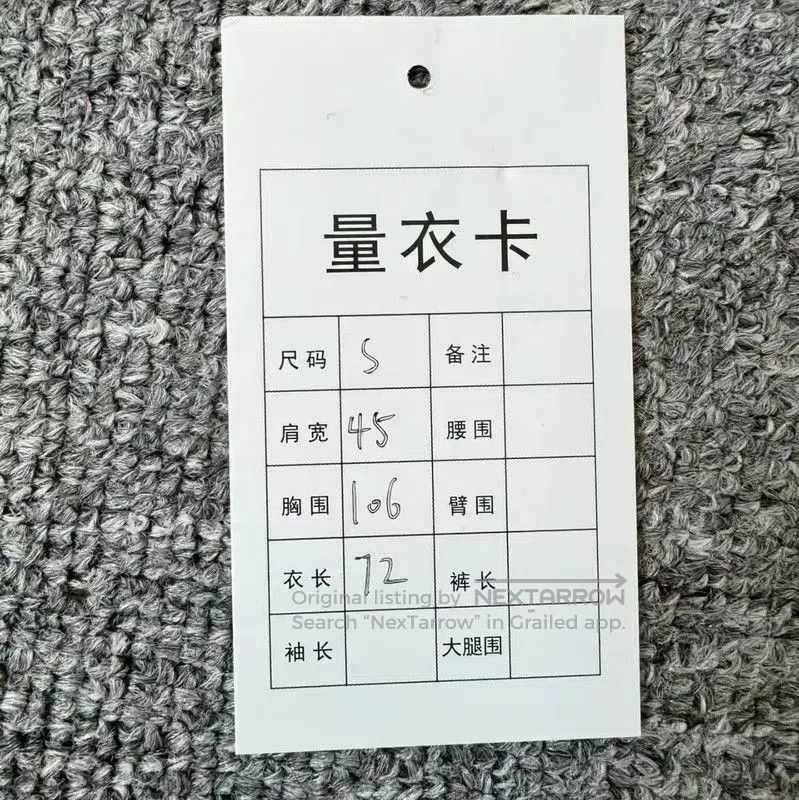 量衣卡
尺码 S 备注
肩宽 45 腰围
胸围 106 臂围
衣长 72 裤长
Original listing by NEXTARROW
Search "NexTarrow" in Grailed app.
袖长 大腿围